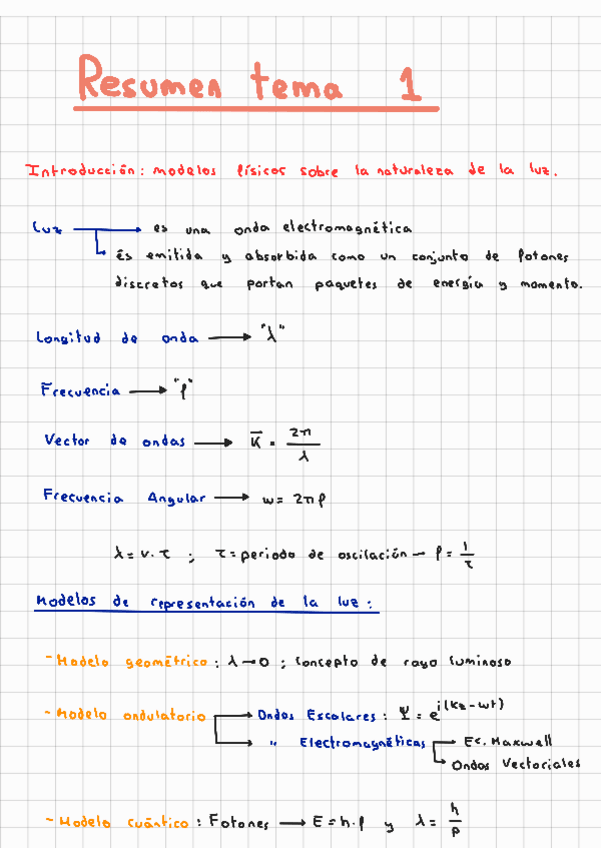 Resumen tema 1
Introducción: modelos físicos sobre la naturaleza de la luz.
Luz → es una onda electromagnética
↳ Es emitida y absorbida como un conjunto de fotones
discretos que portan paquetes de energía y momento.
Longitud de onda → "λ"
Frecuencia → "f"
Vector de ondas → K̅ = 2π/λ
Frecuencia Angular → w = 2πf
λ = v·τ ; τ = periodo de oscilación → f = 1/τ
Modelos de representación de la luz:
- Modelo geométrico: λ → 0 ; Concepto de rayo luminoso
- Modelo ondulatorio → Ondas Escalares: Ψ = e^i(kz-wt)
→ " Electromagnéticas → Ec. Maxwell
↳ Ondas Vectoriales
- Modelo cuántico: Fotones → E = h·f y λ = h/p